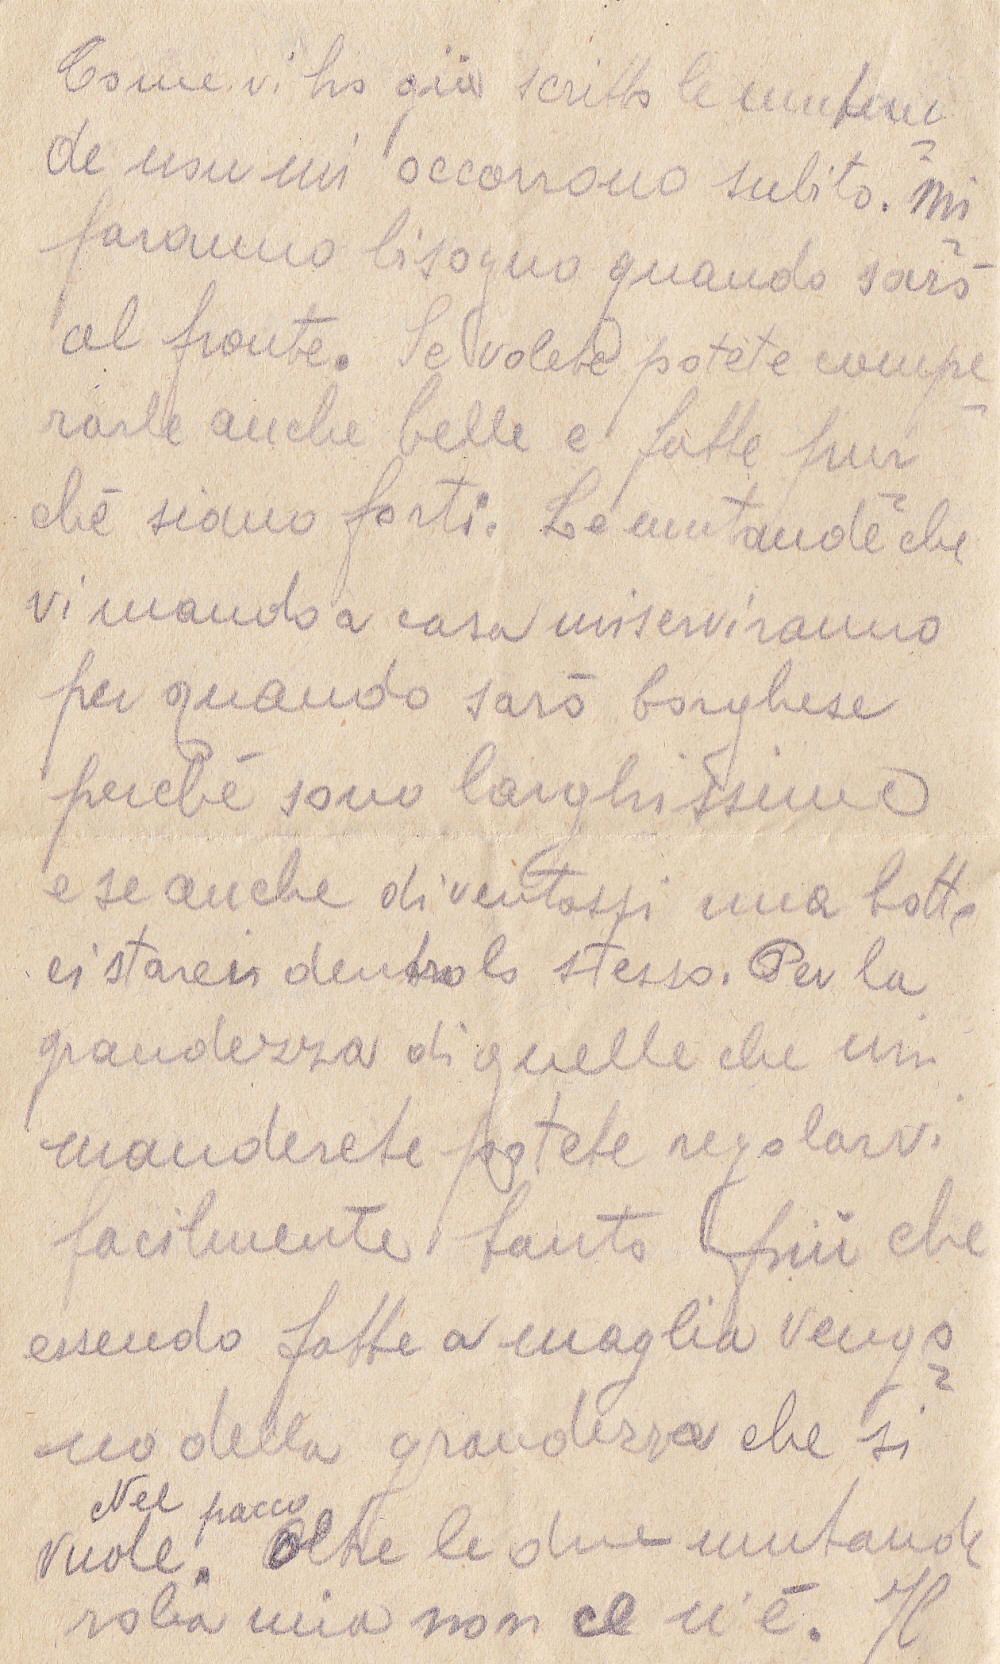 Come vi ho già scritto le mutan=
de non mi occorrono subito. Mi
faranno bisogno quando sarò
al fronte. Se volete potete compe=
rarle anche belle e fatte pur=
chè siano forti. Le mutande che
vi mando a casa mi serviranno
per quando sarò borghese
perchè sono larghissime
e se anche diventassi una botte
ci starei dentro lo stesso. Per la
grandezza di quelle che mi
manderete potete regolarvi
facilmente tanto più che
essendo fatte a maglia vengo=
no della grandezza che si
vuole. Nel pacco Oltre le due mutande
roba mia non ce n'è. Il